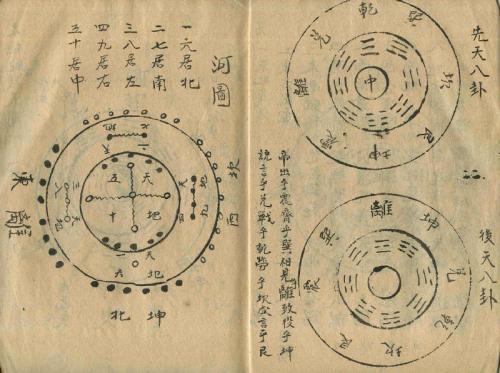 先天八卦
乾
兌
坎
艮
坤
震
離
中
後天八卦
離
坤
兌
乾
坎
艮
震
巽
帝出乎震齊乎巽相見乎離致役乎坤
說言乎兌戰乎乾勞乎坎成言乎艮
河圖
一六居北
二七居南
三八居左
四九居右
五十居申
坎
西
天
五
地
十
天一
地六
東
離
坤
北